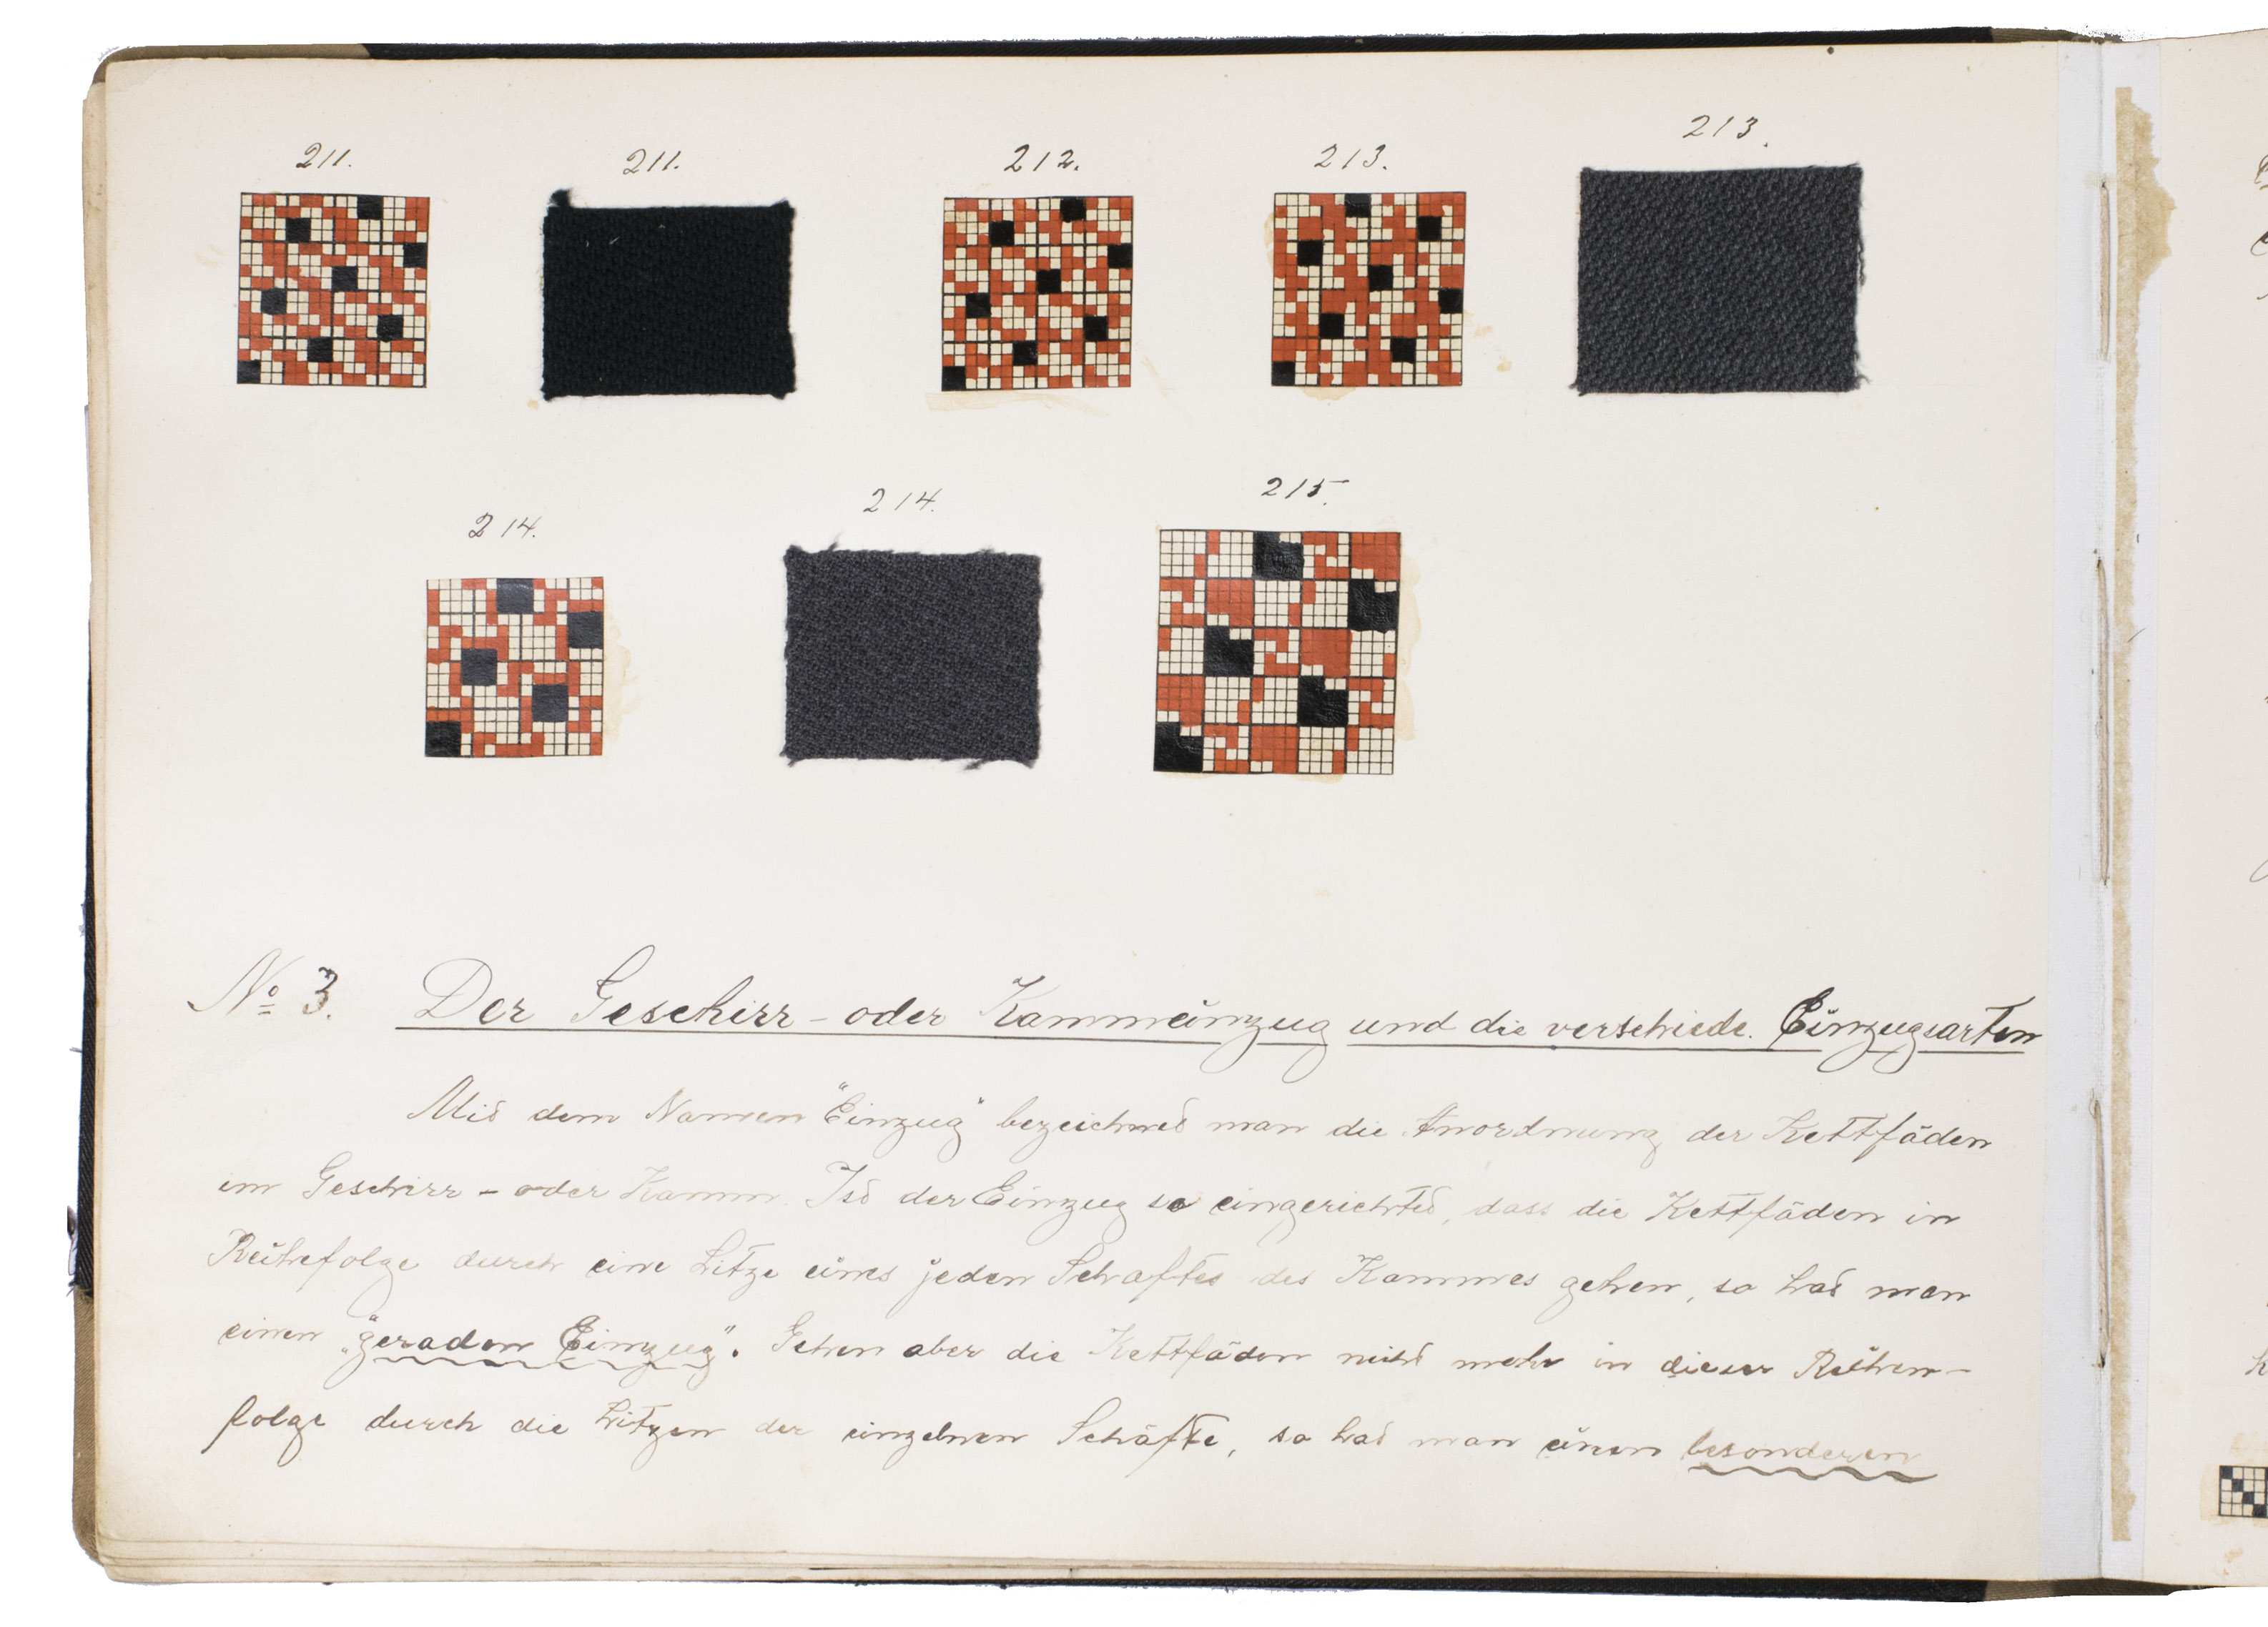 211. 211. 212. 213. 213.
214. 214. 215.
No 3. Der Geschirr - oder Kammeinzug und die verschiede. Einzugsarten
Mit dem Namen "Einzug" bezeichnet man die Anordnung der Kettfäden
im Geschirr - oder Kamm. Ist der Einzug so eingerichtet, dass die Kettfäden in
Reihefolge durch eine Litze eines jeden Schaftes des Kammes gehen, so hat man
einen "geraden Einzug". Gehen aber die Kettfäden nicht mehr in dieser Reihen-
folge durch die Litzen der einzelnen Schäfte, so hat man einen besonderen